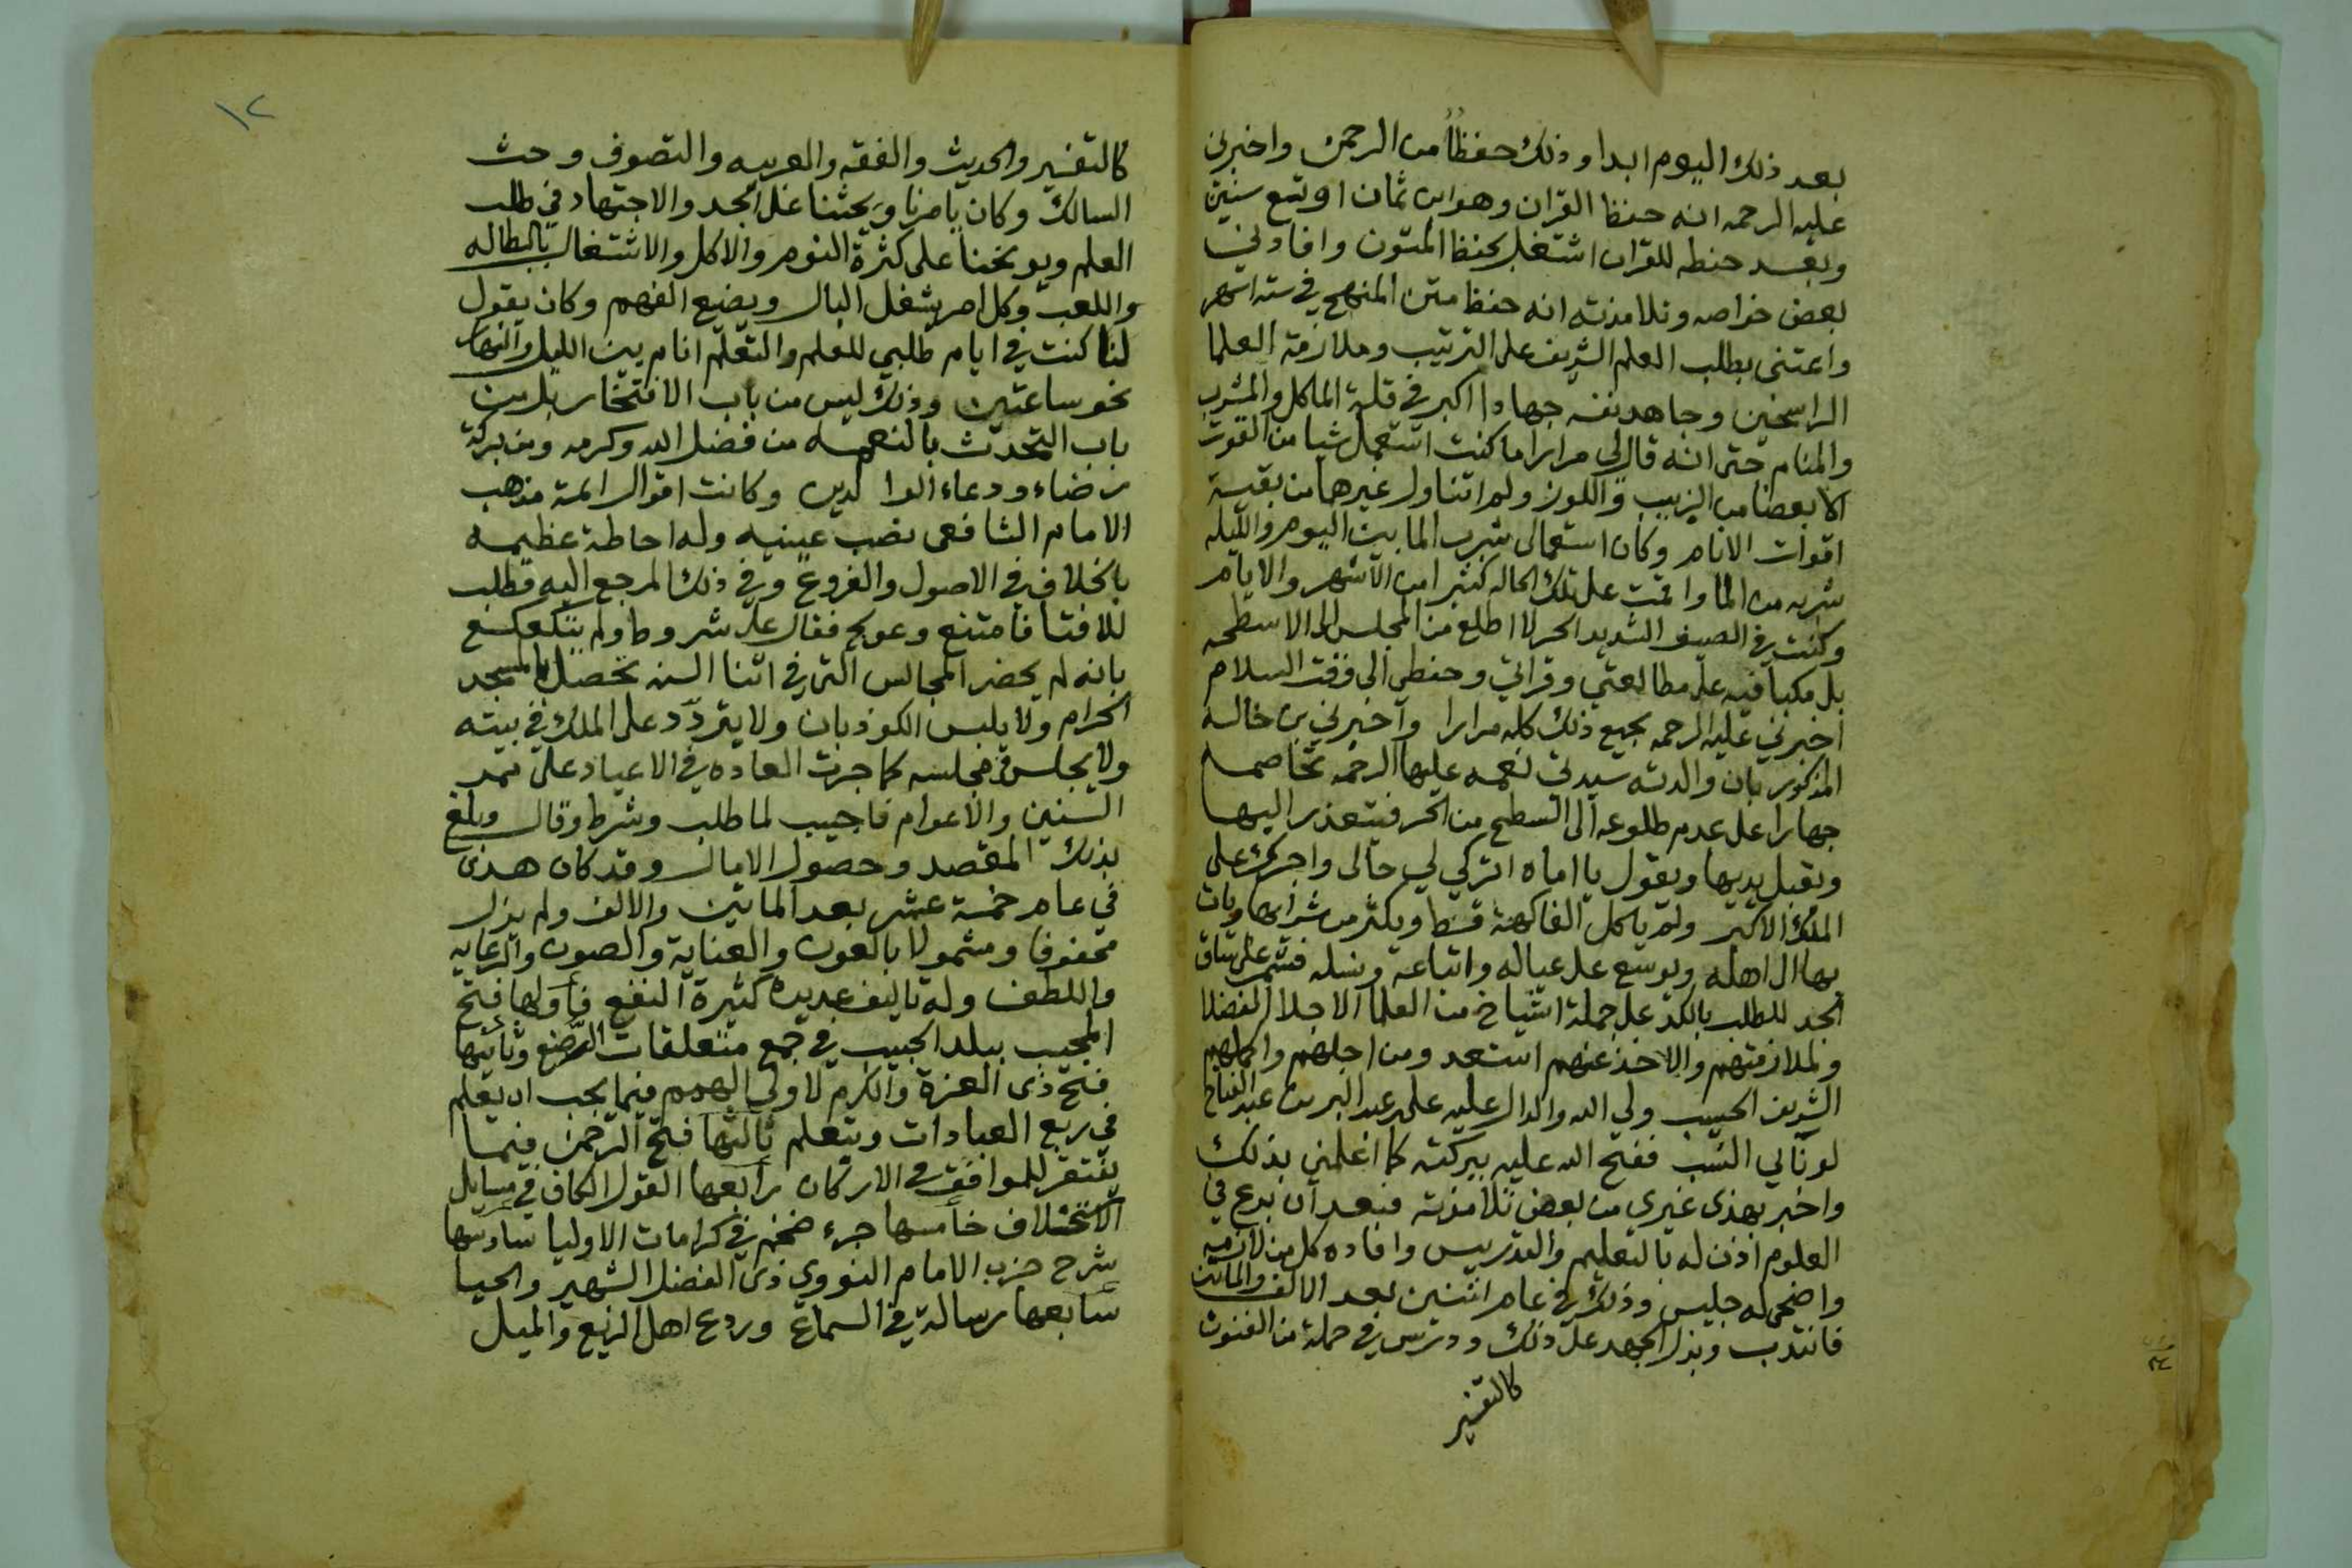 بعد ذلك اليوم ابدا وذلك حفظاً من الرحمن واخبرني
عليه الرحمه انه حفظ القران وهو ابن ثمان او تسع سنين
وبعد حفظه للقران اشتغل بحفظ المتون وافادني
بعض خواصه وتلامذته انه حفظ متن المنهج في سته اشهر
واعتنى بطلب العلم الشريف على الترتيب وملازمة العلما
الراسخين وجاهد نفسه جهادا اكبر في قلة الماكل والمشرب
والمنام حتى انه قال لي مرارا ما كنت استعمل شيا من القوت
الا بعضا من الزبيب واللوز ولم اتناول غيرهما من بقية
اقوات الانام وكان استعمالى شرب الما بين اليوم والليله
شربه من الما واقمت على تلك الحاله كثيرا من الاشهر والايام
وكنت في الصيف الشديد الحر لا اطلع من المجلس الى الاسطحه
بل مكبا فيه على مطالعتي وقراتي وحفظى الى وقت السلام
اخبرني عليه الرحمه بجميع ذلك كله مرارا واخبرني بن خاله
المذكور بان والدته سيدتى نعمه عليها الرحمه تخاصمه
جهارا على عدم طلوعه الى السطح من الحر فيتعذر اليها
ويقبل يديها ويقول يا اماه اتركي لي حالى واجرك على
الملك الاكبر ولم ياكل الفاكهة قط ويكثر من شرايها ويات
بها الى اهله ويوسع على عياله واتباعه ونسله فشمر على ساق
الجد للطلب بالكد على جملة اشياخ من العلما الاجلا الفضلا
ولملازمتهم والاخذ عنهم استعد ومن اجلهم واكملهم
الشريف الحسيب ولي الله والدال عليه على عبد البر بن عبد الفتاح
لونآلي النسب ففتح الله عليه ببركته كما اعلمني بذلك
واخبر بهذى غيري من بعض تلامذته فبعد ان برع في
العلوم اذن له بالتعليم والتدريس وافاده كل من لازمه
واضحى له جليس وذلك في عام اثنين بعد الالف والماتين
فانتدب وبذل الجهد على ذلك ودرس في جملة من الفنون
كالتفسير
١٢
كالتفسير والحديث والفقه والعربيه والتصوف وحث
السالك وكان يامرنا ويحثنا على الجد والاجتهاد في طلب
العلم ويوبخنا على كثرة النوم والاكل والاشتغال بالبطاله
واللعب وكل امر يشغل البال ويضيع الفهم وكان يقول
لنا كنت في ايام طلبي للعلم والتعلم انام بين الليل والنهار
نحو ساعتين وذلك ليس من باب الافتخار بل من
باب التحدث بالنعمه من فضل الله وكرمه ومن بركة
رضاء ودعاء الوالدين وكانت اقوال ائمة مذهب
الامام الشافعى نصب عينيه وله احاطة عظيمه
بالخلاف في الاصول والفروع وفي ذلك المرجع اليه فطلب
للافتا فامتنع وعولج فقال على شروط ولم يتكعكع
بانه لم يحضر المجالس التى في اثنا السنه تحصل بالمسجد
الحرام ولا يلبس الكوذبان ولا يتردد على الملك في بيته
ولا يجلس في مجلسه كما جرت العاده في الاعياد على ممر
السنين والاعوام فاجيب لما طلب وشرط وقال وبلغ
بذلك المقصد وحصول الامال وقد كان هذى
في عام خمسة عشر بعد الماتين والالف ولم يزل
محفوفا ومشمولا بالعون والعناية والصون والرعايه
واللطف وله تاليف عديدة كثيرة النفع فأولها فتح
المجيب ببلد الحبيب في جمع متعلقات الرضع وثانيها
فتح ذى العزة والكرم لاولي الهمم فيما يجب ان يعلم
في ربع العبادات ويتعلم ثالثها فتح الرحمن فيما
يفتقر للموافق في الاركان رابعها القول الكاف في مسايل
الاستخلاف خامسها جزء ضخم في كرامات الاوليا سادسها
شرح حزب الامام النووي ذى الفضل الشهير والحيا
سابعها رسالة في السماع وردع اهل الزيغ والميل